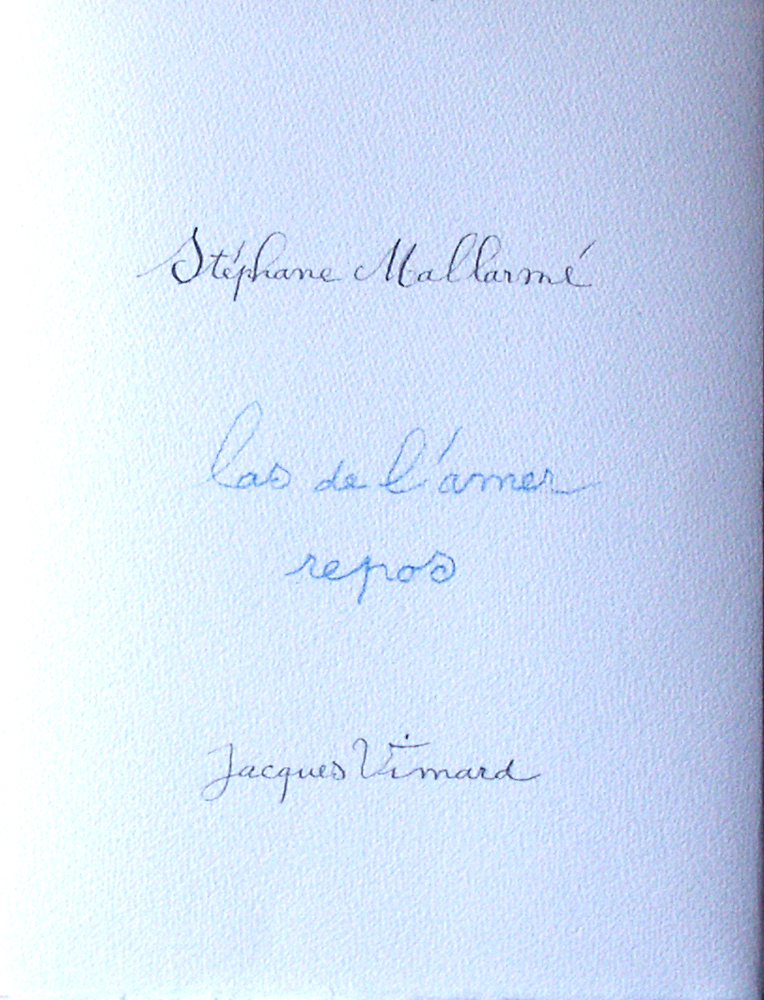 Stéphane Mallarmé
las de l'amer
repos
Jacques Vimard